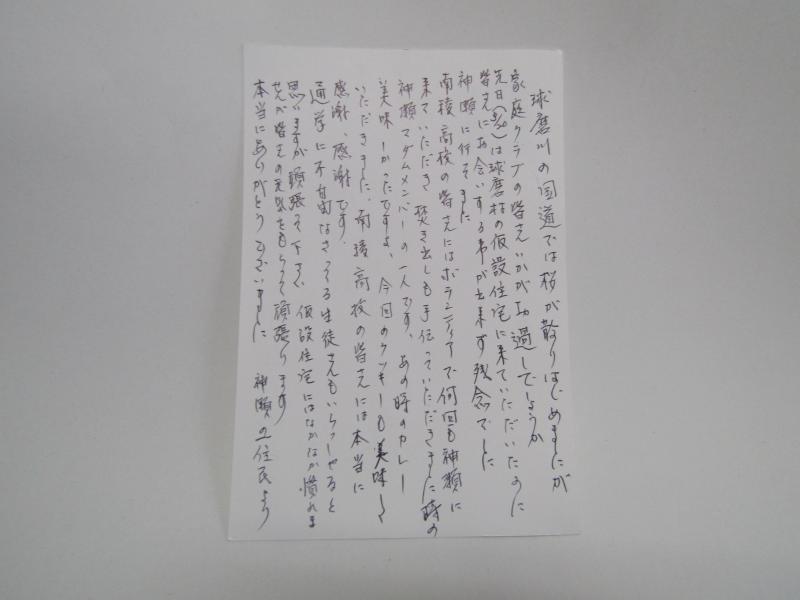 球磨川の国道では桜が散りはじめましたが
家庭クラブの皆さんいかがお過しでしょうか
先日(3/20)は球磨村の仮設住宅に来ていただいたのに
皆さんにお会いする事が出来ず残念でした
神瀬に行てました
南稜高校の皆さんにはボランティアで何回も神瀬に
来ていただき焚き出しも手伝っていただきました時の
神瀬マダムメンバーの一人です、あの時のカレー
美味しかったですよ、今回のクッキーも美味しく
いただきました、南稜高校の皆さんには本当に
感謝、感謝です、
通学に不自由なさってる生徒さんもいらっしゃると
思いますが頑張って下さい 仮設住宅にはなかなか慣れま
せんが皆さんの元気をもらって頑張ります
本当にありがとうございました 神瀬の住民より